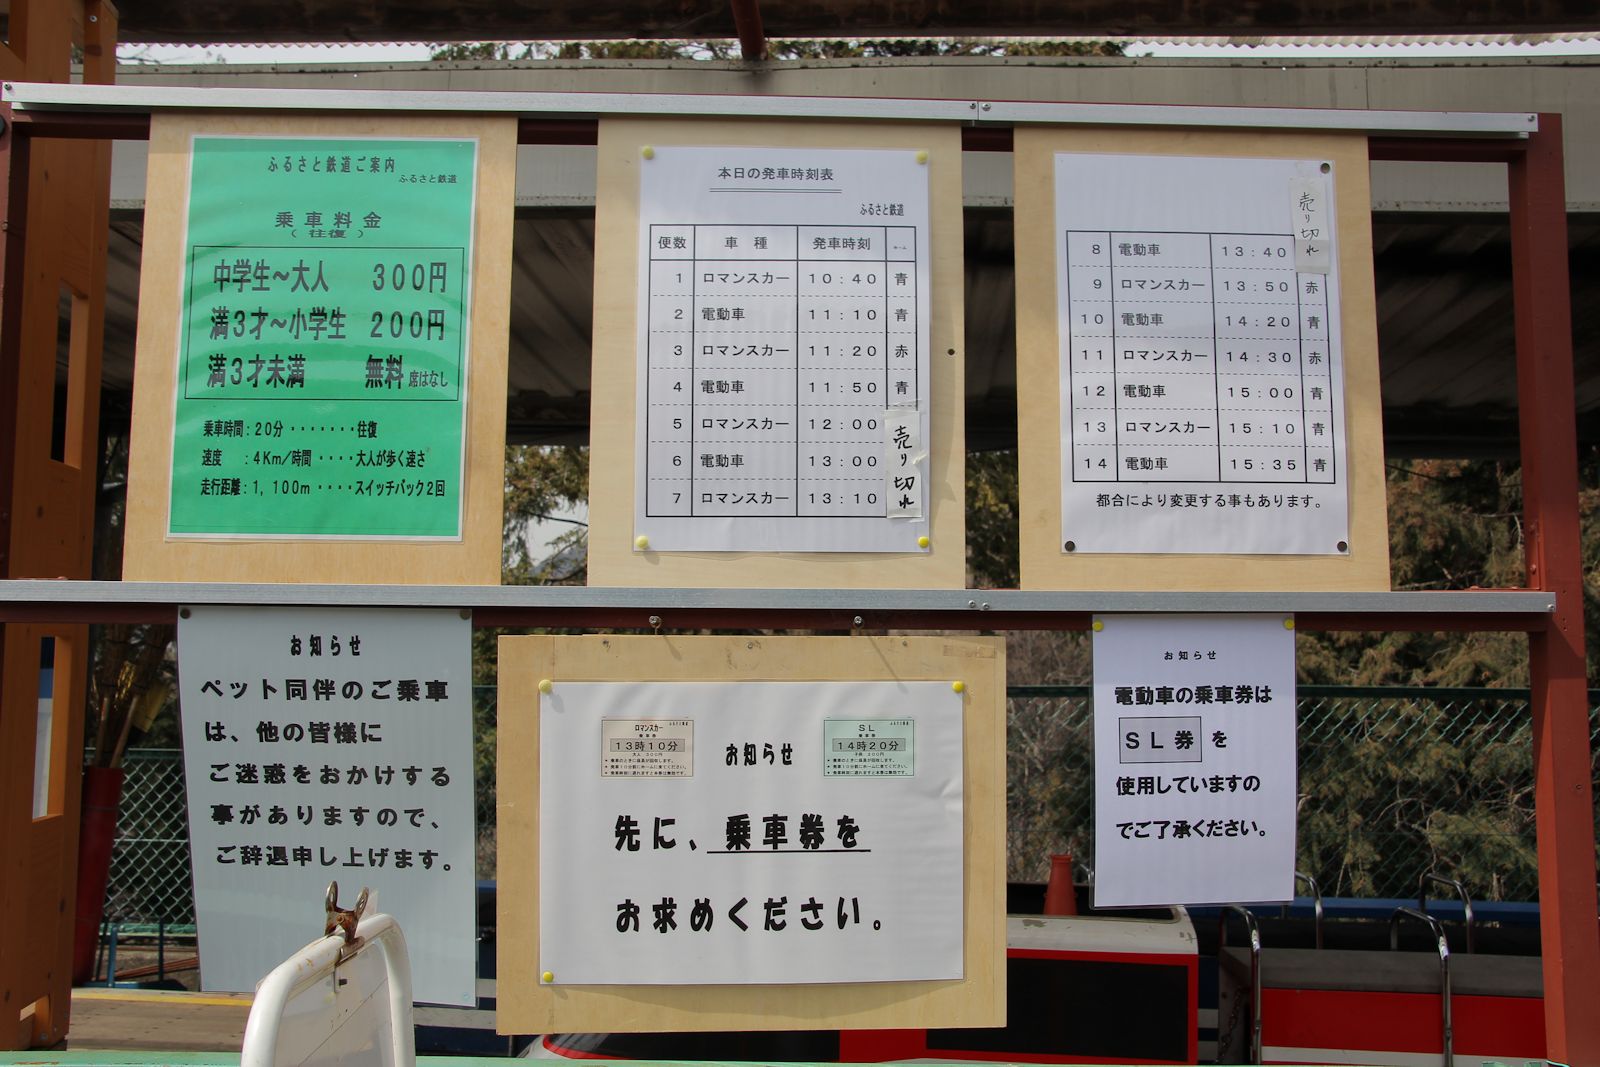 ふるさと鉄道ご案内
ふるさと鉄道
乗車料金
(往復)
中学生～大人 300円
満3才～小学生 200円
満3才未満 無料 席はなし
乗車時間:20分・・・・・・・往復
速度 :4Km/時間・・・・大人が歩く速さ
走行距離:1,100m・・・・スイッチバック2回
本日の発車時刻表
ふるさと鉄道
便数 車種 発車時刻 ホーム
1 ロマンスカー 10:40 青
2 電動車 11:10 青
3 ロマンスカー 11:20 赤
4 電動車 11:50 青
5 ロマンスカー 12:00
6 電動車 13:00
7 ロマンスカー 13:10
売り切れ
売り切れ
8 電動車 13:40
9 ロマンスカー 13:50 赤
10 電動車 14:20 青
11 ロマンスカー 14:30 赤
12 電動車 15:00 青
13 ロマンスカー 15:10 青
14 電動車 15:35 青
都合により変更する事もあります。
お知らせ
ペット同伴のご乗車
は、他の皆様に
ご迷惑をおかけする
事がありますので、
ご辞退申し上げます。
ロマンスカー
乗車券
13時10分
SL
乗車券
14時20分
お知らせ
先に、乗車券を
お求めください。
お知らせ
電動車の乗車券は
SL券 を
使用していますの
でご了承ください。